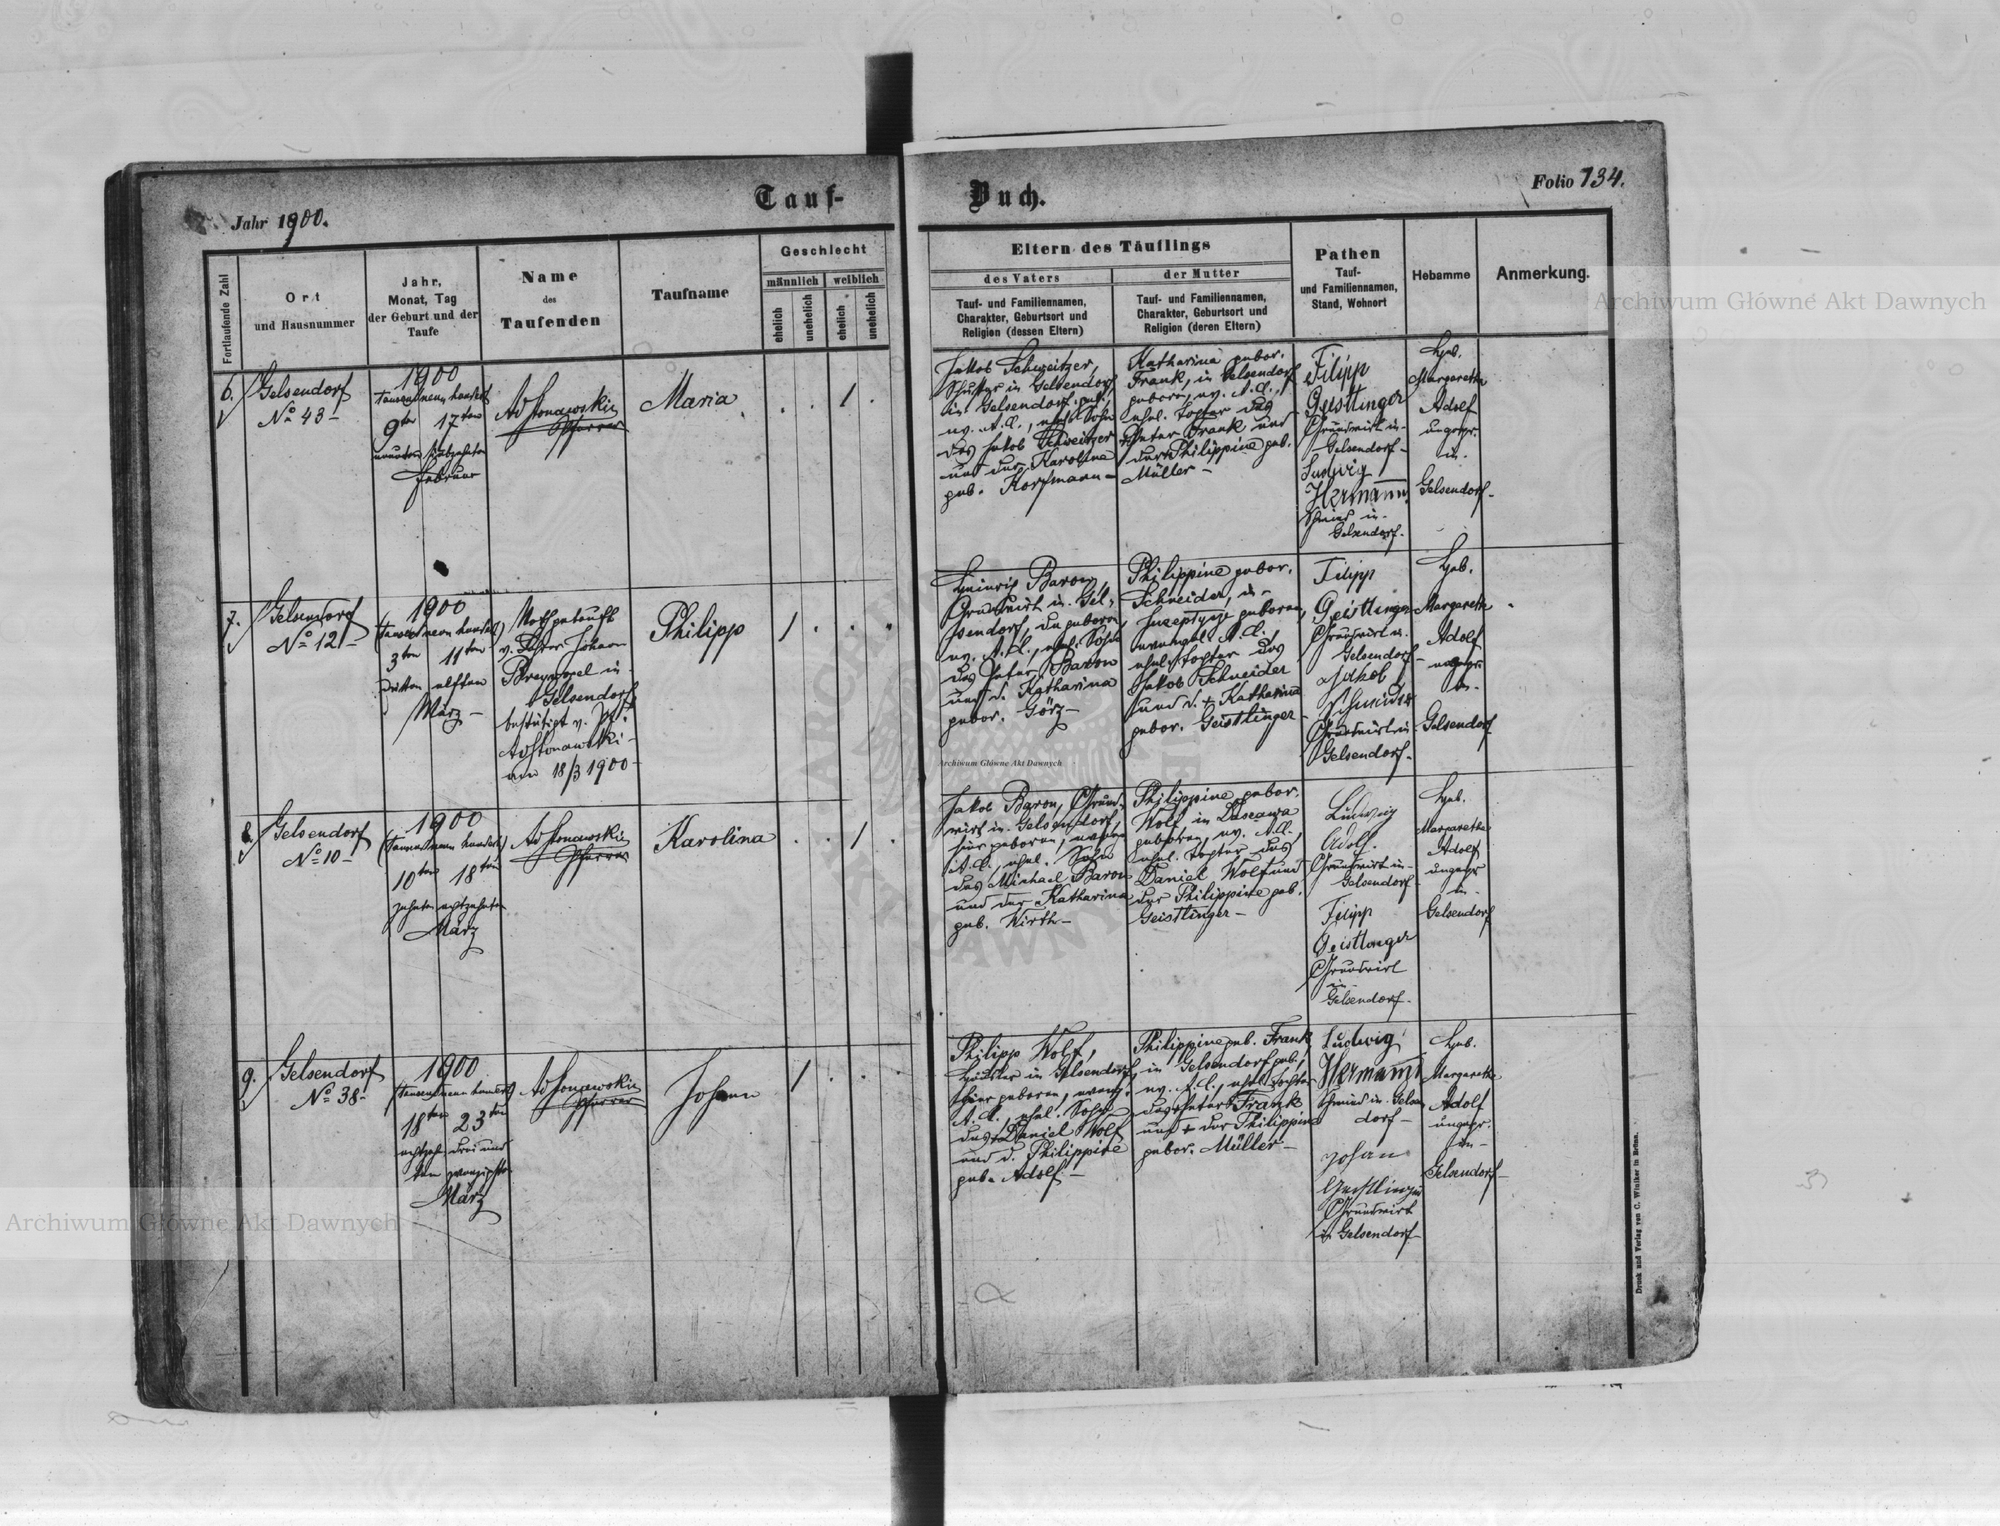 Tauf-
Buch.
Jahr 1900.
Folio 134.
Fortlaufende Zahl
Ort
und Hausnummer
Jahr,
Monat, Tag
der Geburt und der
Taufe
Name
des
Taufenden
Taufname
Geschlecht
männlich
weiblich
ehelich
unehelich
ehelich
unehelich
Eltern des Täuflings
des Vaters
Tauf- und Familiennamen,
Charakter, Geburtsort und
Religion (dessen Eltern)
der Mutter
Tauf- und Familiennamen,
Charakter, Geburtsort und
Religion (deren Eltern)
Pathen
Tauf-
und Familiennamen,
Stand, Wohnort
Hebamme
Anmerkung.
6.
Gelsendorf
No 43-
1900
tausend neun hundert
9ten 17ten
neunten siebzehnten
Februar
Ad Honawskii
Pfarrer
Maria
1
Jakob Schweitzer,
Schuster in Gelsendorf
in Gelsendorf geb.,
ev. A.C., ehel. Sohn
des Jakob Schweitzer
und der Karolina
geb. Korfmann-
Katharina gebor.
Frank, in Gelsendorf
geboren, ev. A.C.,
ehel. Tochter des
Peter Frank und
der Philippine geb.
Müller-
Filipp
Geistlinger
Grundwirt in
Gelsendorf-
Ludwig
Hermann
Schmied in
Gelsendorf.
Heb.
Margaretha
Adolf
ungepr.
in
Gelsendorf-
7.
Gelsendorf
No 12
1900
(tausend neun hundert)
3ten 11ten
dritten elften
März-
Notgetauft
v. Lehrer Johann
in
Gelsendorf
bestätigt v. Pf.
Ad Honawski-
am 18/3 1900-
Philipp
1
Heinrich Baron,
Grundwirt in Gel-
sendorf, da geboren,
ev. A.C., ehel. Sohn
des Peter Baron
und d. Katharina
gebor. Görz-
Philippine gebor.
Schneider, in
geboren,
evangel. A.C.,
ehel. Tochter des
Jakob Schneider
und d. + Katharina
gebor. Geistlinger-
Filipp
Geistlinger
Grundwirt in
Gelsendorf-
Jakob
Schneider
Grundwirt in
Gelsendorf.
Heb.
Margaretha
Adolf
ungepr.
in
Gelsendorf
8.
Gelsendorf
No 10-
1900
(tausend neun hundert)
10ten 18ten
zehnten achtzehnten
März
Ad Honawskii
Pfarrer
Karolina
1
Jakob Baron, Grund-
wirt in Gelsendorf,
hier geboren, evang.
A.C., ehel. Sohn
des Michael Baron
und der Katharina
geb. Wirth-
Philippine gebor.
Wolf in
geboren, ev. A.C.,
ehel. Tochter des
Daniel Wolf und
der Philippine geb.
Geistlinger-
Ludwig
Adolf.
Grundwirt in
Gelsendorf
Filipp
Geistlinger
Grundwirt
in
Gelsendorf.
Heb.
Margaretha
Adolf
ungepr
in
Gelsendorf
9.
Gelsendorf
No 38-
1900
(tausend neun hundert)
18ten 23ten
achtzehn drei und
ten zwanzigsten
März
Ad Honawskii
Pfarrer
Johann
1
Philipp Wolf,
Häusler in Gelsendorf,
hier geboren, evang.
A.C., ehel. Sohn
des + Daniel Wolf
und d. Philippine
geb. Adolf-
Philippine geb. Frank
in Gelsendorf geb.,
ev. A.C., ehel. Tochter
des Peter Frank
und + der Philippine
gebor. Müller-
Ludwig
Hermann
Schmied in Gelsen
dorf-
Johan
Geistlinger
Grundwirt
in Gelsendorf
Heb.
Margaretha
Adolf
ungepr.
in
Gelsendorf-
Druck und Verlag von C. Winiker in Brünn.
Archiwum Główne Akt Dawnych
Archiwum Główne Akt Dawnych
Archiwum Główne Akt Dawnych